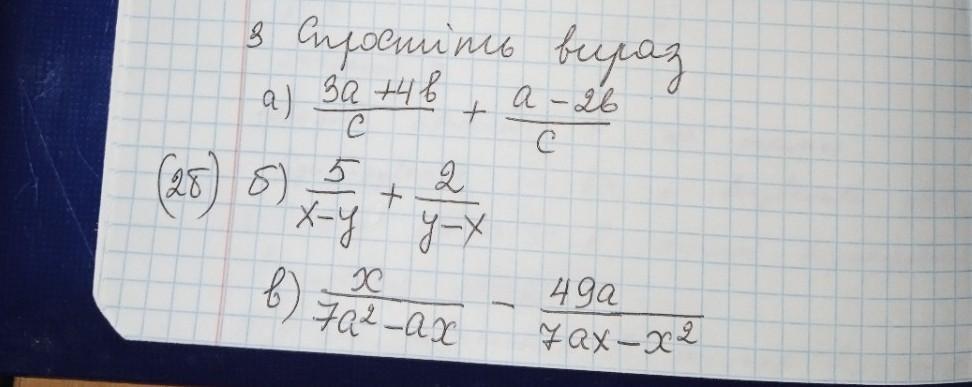 3 Спростіть вираз
а) (3a + 4b)/c + (a - 2b)/c
(2б) б) 5/(x-y) + 2/(y-x)
в) x/(7a² - ax) - 49a/(7ax - x²)